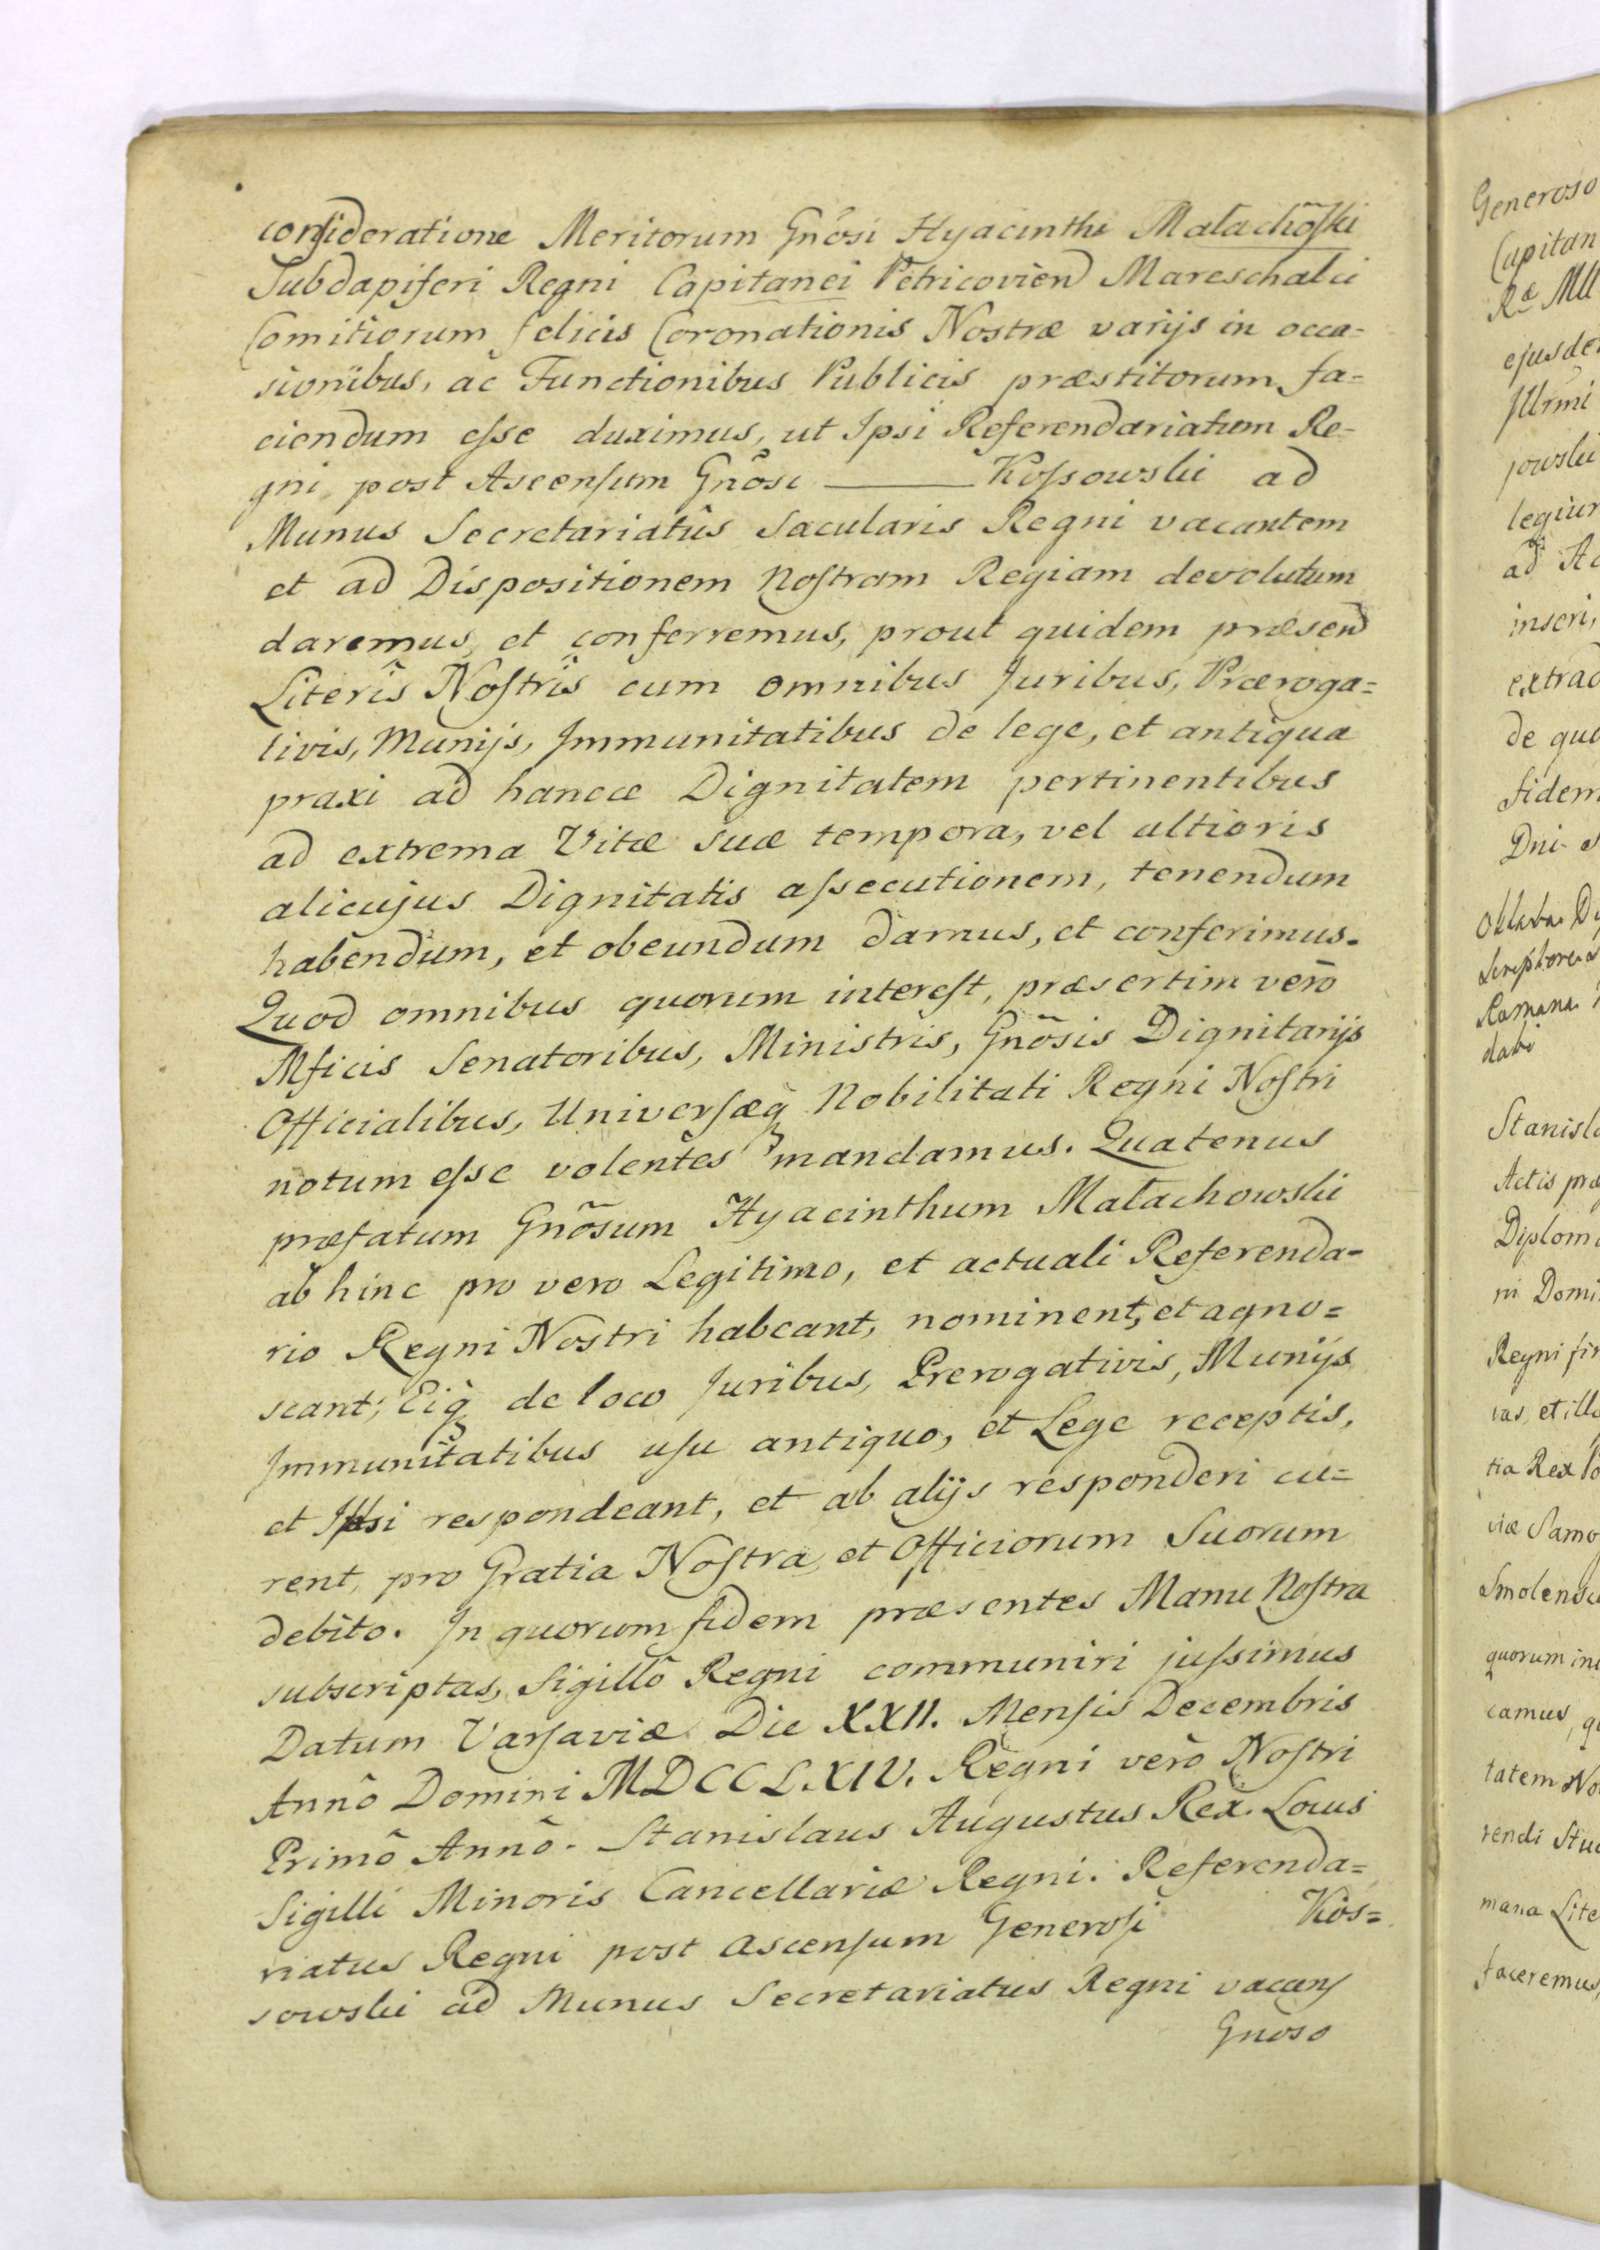 consideratione Meritorum Gnõsi Hyacinthi Małachõski
Subdapiferi Regni Capitanei Petricovien Mareschalci
Comitiorum felicis Coronationis Nostræ varijs in occa=
sionibus, ac Functionibus Publicis præstitorum, fa=
ciendum esse duximus, ut Ipsi Referendariatum Re-
gni post Ascensum Gnõsi ——— Kossowski ad
Munus Secretariatûs Sæcularis Regni vacantem
et ad Dispositionem Nostram Regiam devolutum
daremus, et conferremus, prout quidem præsen
Literîs Nostrîs cum omnibus Juribus, Præroga=
tivis, Munijs, Immunitatibus de lege, et antiqua
praxi ad hancce Dignitatem pertinentibus
ad extrema Vitæ suæ tempora, vel altioris
alicujus Dignitatis assecutionem, tenendum
habendum, et obeundum damus, et conferimus.
Quod omnibus quorum interest, præsertim verò
Mficis Senatoribus, Ministris, Gnõsis Dignitarijs
Officialibus, Universæq́ Nobilitati Regni Nostri
notum esse volentes mandamus. Quatenus
præfatum Gnõsum Hyacinthum Małachowski
ab hinc pro vero Legitimo, et actuali Referenda=
rio Regni Nostri habeant, nominent, et agno=
scant; Eiq́ de loco Juribus, Prerogativis, Munijs
Immunitatibus usu antiquo, et Lege receptis,
et Ipsi respondeant, et ab alijs responderi cu=
rent, pro Gratia Nostra, et Officiorum Suorum
debito. In quorum fidem præsentes Manu Nostra
subscriptas, Sigillô Regni communiri jussimus
Datum Varsaviæ Die XXII. Mensis Decembris
Annô Domini MDCCLXIV. Regni verò Nostri
Primô Annô. Stanislaus Augustus Rex. Locus
Sigilli Minoris Cancellariæ Regni. Referenda=
riatus Regni post ascensum Generosi Kos=
sowski ad Munus Secretariatus Regni vacans
Gnoso
Generoso
Capitan
ejusde
Illrmi
jowski
legiur
ad Ac
inseri,
extrad
de quo
fidem
Dni
Oblata Dy
Romana
dabi
Stanisl
Actis præ
Diplom
ni Domi
Regni fir
vas, et ill
tia Rex Po
viæ Samo
Smolensc
quorum in
camus, q
tatem No
rendi Stu
mana Lite
faceremus,